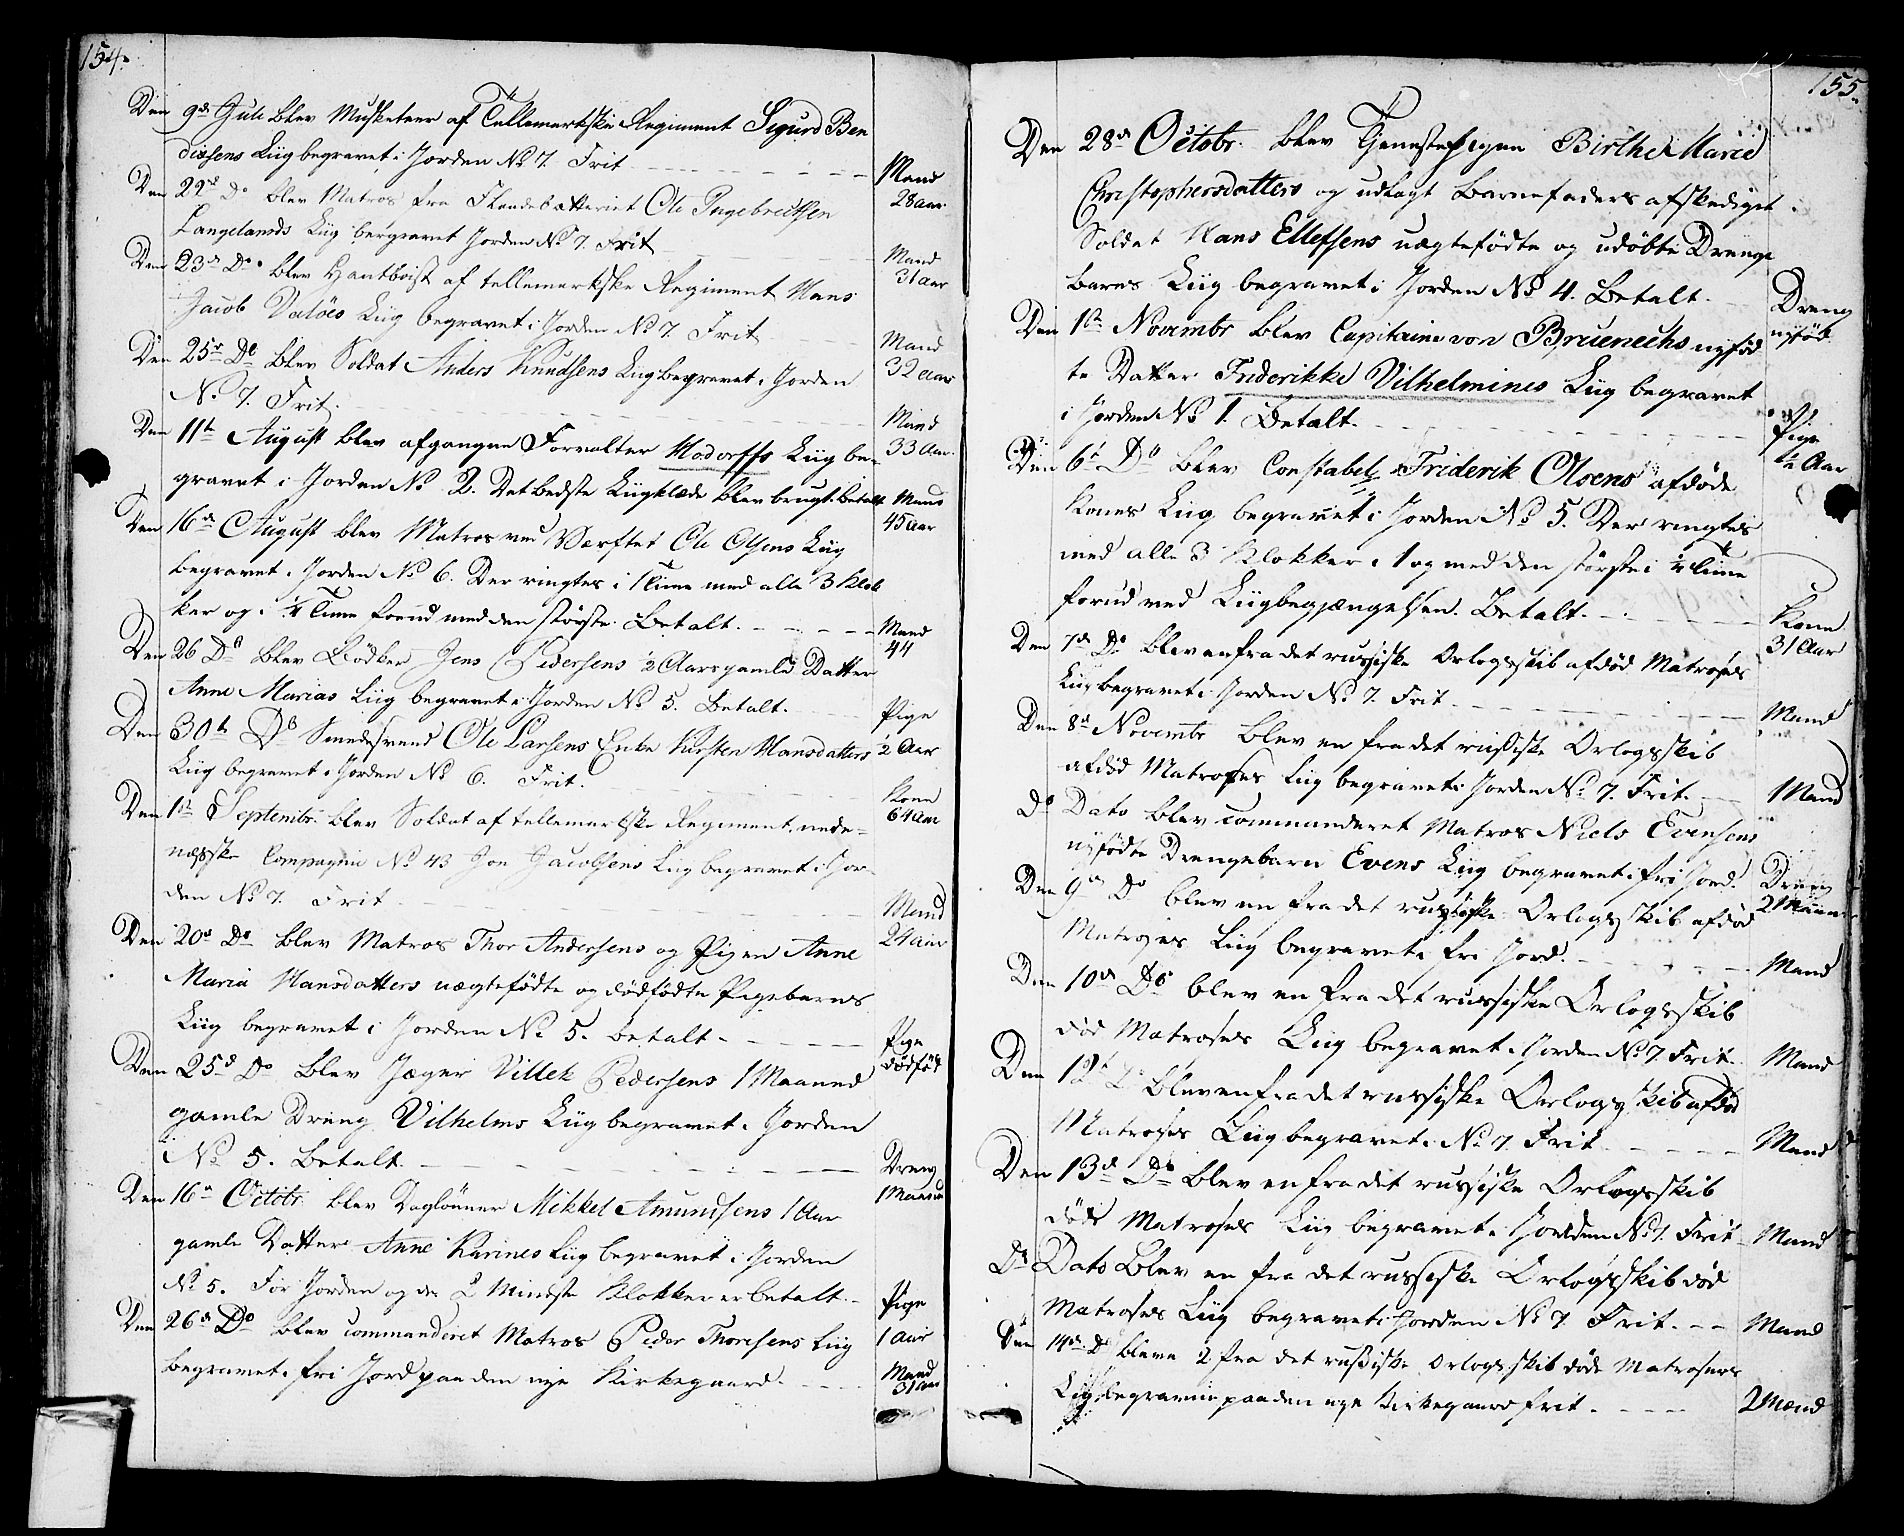 154.
Den 9de Juli blev Musketeer af Tellemarkske Regiment Sigurd Ben
dixsens Liig begravet i Jorden No 7. Frit
Mand
28 aar
Den 22de Do blev Matros fra Flaadebatteriet Ole Ingebrectsen
Langelands Liig bergravet Jorden No 7. Frit
Mand
31 aar
Den 23de Do blev Hautboist af tellemarkske Regiment Hans
Jacob Valöes Liig begravet i Jorden No 7. Frit
Mand
32 aar
Den 25de Do blev Soldat Anders Knudsens Liig begravet i Jorden
No 7. Frit.
Mand
33 Aar.
Den 11te August blev afgangne Forvalter Modorffs Liig be-
gravet i Jorden No 2. Det bedste Liigklæde blev brugt. Betalt
Mand
45 aar
Den 16de August blev Matros ved Værftet Ole Olsens Liig
begravet i Jorden No 6. Der ringtes i 1 Time med alle 3 Klok
ker og i ¼ Time forud med den største. Betalt.
Mand
44
Den 26 Do blev Bödker Jens Pedersens ½ Aars gamle Datter
Anne Marias Liig begravet i Jorden No 5. Betalt.
Pige
½ Aar
Den 30te Do Smedesvend Ole Larsens Enke Kirsten Hansdatters
Liig begravet i Jorden No 6. Frit.
Kone
64 aar
Den 1te Septembr. blev Soldat af tellemarkske Regiment, nede-
næsske Compagnie No 43 Jon Jacobsens Liig begravet i Jor-
den No 7. Frit
Mand
24 aar
Den 20de Do blev Matros Thor Andersens og Pigen Anne
Maria Hansdatters uægtefödte og dödfödte Pigebarns
Liig begravet i Jorden No 5. betalt.
Pige
dödföd
Den 25de Do blev Jæger Villek Pedersens 1 Maaned
gamle Dreng Vilhelms Liig begravet i Jorden
No 5. betalt.
Dreng
1 Maaned
Den 16de Octobr. blev Daglönner Mikkel Amundsens 1 Aar
gamle Datter Anne Karines Liig begravet i Jorden
No 5. For Jorden og de 2 Mindste Klokker er betalt.
Pige
1 aar
Den 26de Do blev commanderet Matros Peder Thoresens Liig
begravet i fri Jord paa den nye Kirkegaard.
Mand
31 aar
155.
Den 28de Octobr. blev Tjenestepigen Birthe Marie
Christophersdatters og udlagt Barnefaders afskediget
Soldat Hans Ellefsens uægtefödte og udöbte Drenge
barns Liig begravet i Jorden No 4. Betalt.
Dreng
nyföd
Den 1te Novembr blev Capitaine von Bruenechs nyföd
te Datter Friderikke Vilhelmines Liig begravet
i Jorden No 1. Betalt.
Pige
½ Aar
Den 6te Do blev Constabel Friderik Olsens afdöde
Kones Liig begravet i Jorden No 5. Der ringtes
med alle 3 Klokker i 1 og med den störste i ¼ Time
forud ved Liigbegjængelsen. Betalt.
Kone
31 Aar
Den 7de Do blev en fra det russiske Orlogsskib afdöd Matroses
Liig begravet i Jorden No 7. Frit
Mand
Den 8de Novembr blev en fra det russiske Orlogsskib
afdöd Matroses Liig begravet i Jorden No 7. Frit.
1 Mand
Do Dato blev commanderet Matros Niels Evensens
nyfödte Drengebarn Evens Liig begravet i fri Jord.
Dreng
2 Maaner
Den 9de Do blev en fra det russiske Orlogsskib afdöd
Matroses Liig begravet i fri Jord.
Mand
Den 10de Do blev en fra det russiske Orlogsskib
död Matroses Liig begravet i Jorden No 7 Frit
Mand
Den 12te Do blev en fra det russiske Orlogsskib afdöd
Matroses Liig begravet i No 7. Frit
Mand
Den 13de Do blev en fra det russiske Orlogsskib
död Matroses Liig begravet i Jorden No 7. Frit
Mand
Do Dato blev en fra det russiske Orlogsskib död
Matroses Liig begravet i Jorden No 7. Frit.
Mand
Den 14de Do bleve 2 fra det russiske Orlogsskib döde Matrosers
Liig begravne paa den nye Kirkegaard frit.
2 Mænd